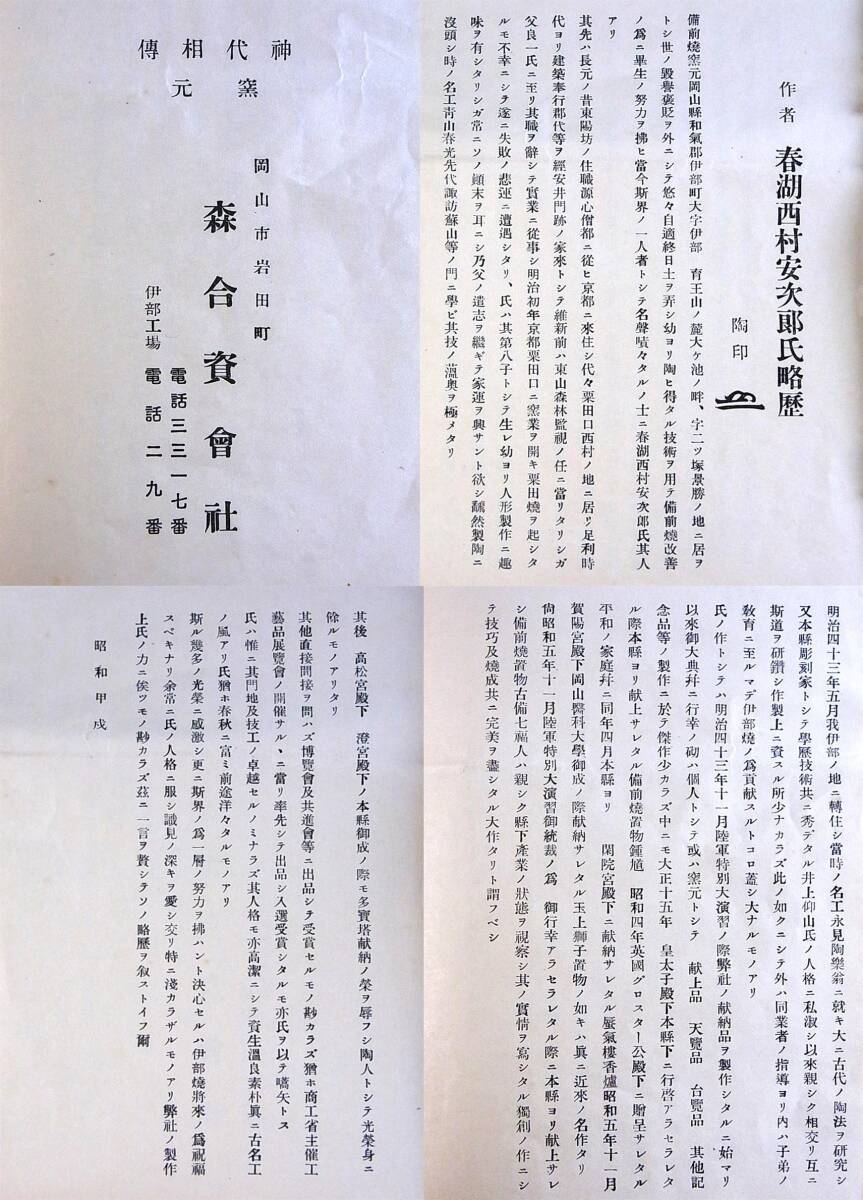 作者 春湖西村安次郎氏略歴
陶印
備前燒窯元岡山縣和氣郡伊部町大字伊部 育王山ノ麓大ケ池ノ畔、字二ツ塚景勝ノ地ニ居ヲ
トシ世ノ毀譽褒貶ヲ外ニシテ悠々自適終日土ヲ弄シ幼ヨリ陶ヒ得タル技術ヲ用テ備前燒改善
ノ爲ニ畢生ノ努力ヲ拂ヒ當今斯界ノ一人者トシテ名聲嘖々タルノ士ニ春湖西村安次郎氏其人
アリ
其先ハ長元ノ昔東陽坊ノ住職源心僧都ニ從ヒ京都ニ來住シ代々粟田口西村ノ地ニ居リ足利時
代ヨリ建築奉行郡代等ヲ經安井門跡ノ家來トシテ維新前ハ東山森林監視ノ任ニ當リタリシガ
父良一氏ニ至リ其職ヲ辭シテ實業ニ從事シ明治初年京都粟田口ニ窯業ヲ開キ粟田燒ヲ起シタ
ルモ不幸ニシテ遂ニ失敗ノ悲運ニ遭遇シタリ、氏ハ其第八子トシテ生レ幼ヨリ人形製作ニ趣
味ヲ有シタリシガ常ニソノ顚末ヲ耳ニシ乃父ノ遺志ヲ繼ギテ家運ヲ興サント欲シ飜然製陶ニ
沒頭シ時ノ名工靑山春光先代諏訪蘇山等ノ門ニ學ビ其技ノ薀奥ヲ極メタリ
神代相傳
窯元
岡山市岩田町
森合資會社
電話三三一七番
伊部工場 電話二九番
明治四十三年五月我伊部ノ地ニ轉住シ當時ノ名工永見陶樂翁ニ就キ大ニ古代ノ陶法ヲ研究シ
又本縣彫刻家トシテ學歷技術共ニ秀デタル井上仰山氏ノ人格ニ私淑シ以來親シク相交リ互ニ
斯道ヲ硏鑽シ作製上ニ資スル所少ナカラズ此ノ如クニシテ外ハ同業者ノ指導ヨリ内ハ子弟ノ
敎育ニ至ルマデ伊部燒ノ爲貢献スルトコロ蓋シ大ナルモノアリ
氏ノ作トシテハ明治四十三年十一月陸軍特別大演習ノ際弊社ノ献納品ヲ製作シタルニ始マリ
以來御大典幷ニ行幸ノ砌ハ個人トシテ或ハ窯元トシテ 献上品 天覽品 台覽品 其他記
念品等ノ製作ニ於テ傑作少カラズ中ニモ大正十五年 皇太子殿下本縣下ニ行啓アラセラレタ
ル際本縣ヨリ献上サレタル備前燒置物鍾馗 昭和四年英國グロスター公殿下ニ贈呈サレタル
平和ノ家庭幷ニ同年四月本縣ヨリ 閑院宮殿下ニ献納サレタル蜃氣樓香爐昭和五年十一月
賀陽宮殿下岡山醫科大學御成ノ際献納サレタル玉上獅子置物ノ如キハ眞ニ近來ノ名作タリ
尙昭和五年十一月陸軍特別大演習御統裁ノ爲 御行幸アラセラレタル際ニ本縣ヨリ献上サレ
シ備前燒置物古備七福人ハ親シク縣下產業ノ狀態ヲ視察シ其ノ實情ヲ寫シタル獨創ノ作ニシ
テ技巧及燒成共ニ完美ヲ盡シタル大作タリト謂フベシ
其後 高松宮殿下 澄宮殿下ノ本縣御成ノ際モ多寶塔献納ノ榮ヲ辱フシ陶人トシテ光榮身ニ
餘ルモノアリタリ
其他直接間接ヲ問ハズ博覽會及共進會等ニ出品シテ受賞セルモノ尠カラズ猶ホ商工省主催工
藝品展覽會ノ開催サルヽニ當リ率先シテ出品シ入選受賞シタルモ亦氏ヲ以テ嚆矢トス
氏ハ惟ニ其門地及技工ノ卓越セルノミナラズ其人格モ亦高潔ニシテ資生溫良素朴眞ニ古名工
ノ風アリ氏猶ホ春秋ニ富ミ前途洋々タルモノアリ
斯ル幾多ノ光榮ニ感激シ更ニ斯界ノ爲一層ノ努力ヲ拂ハント決心セルハ伊部燒將來ノ爲祝福
スベキナリ余常ニ氏ノ人格ニ服シ識見ノ深キヲ愛シ交リ特ニ淺カラザルモノアリ弊社ノ製作
上氏ノ力ニ俟ツモノ尠カラズ茲ニ一言ヲ贅シテソノ略歷ヲ叙ストイフ爾
昭和甲戌